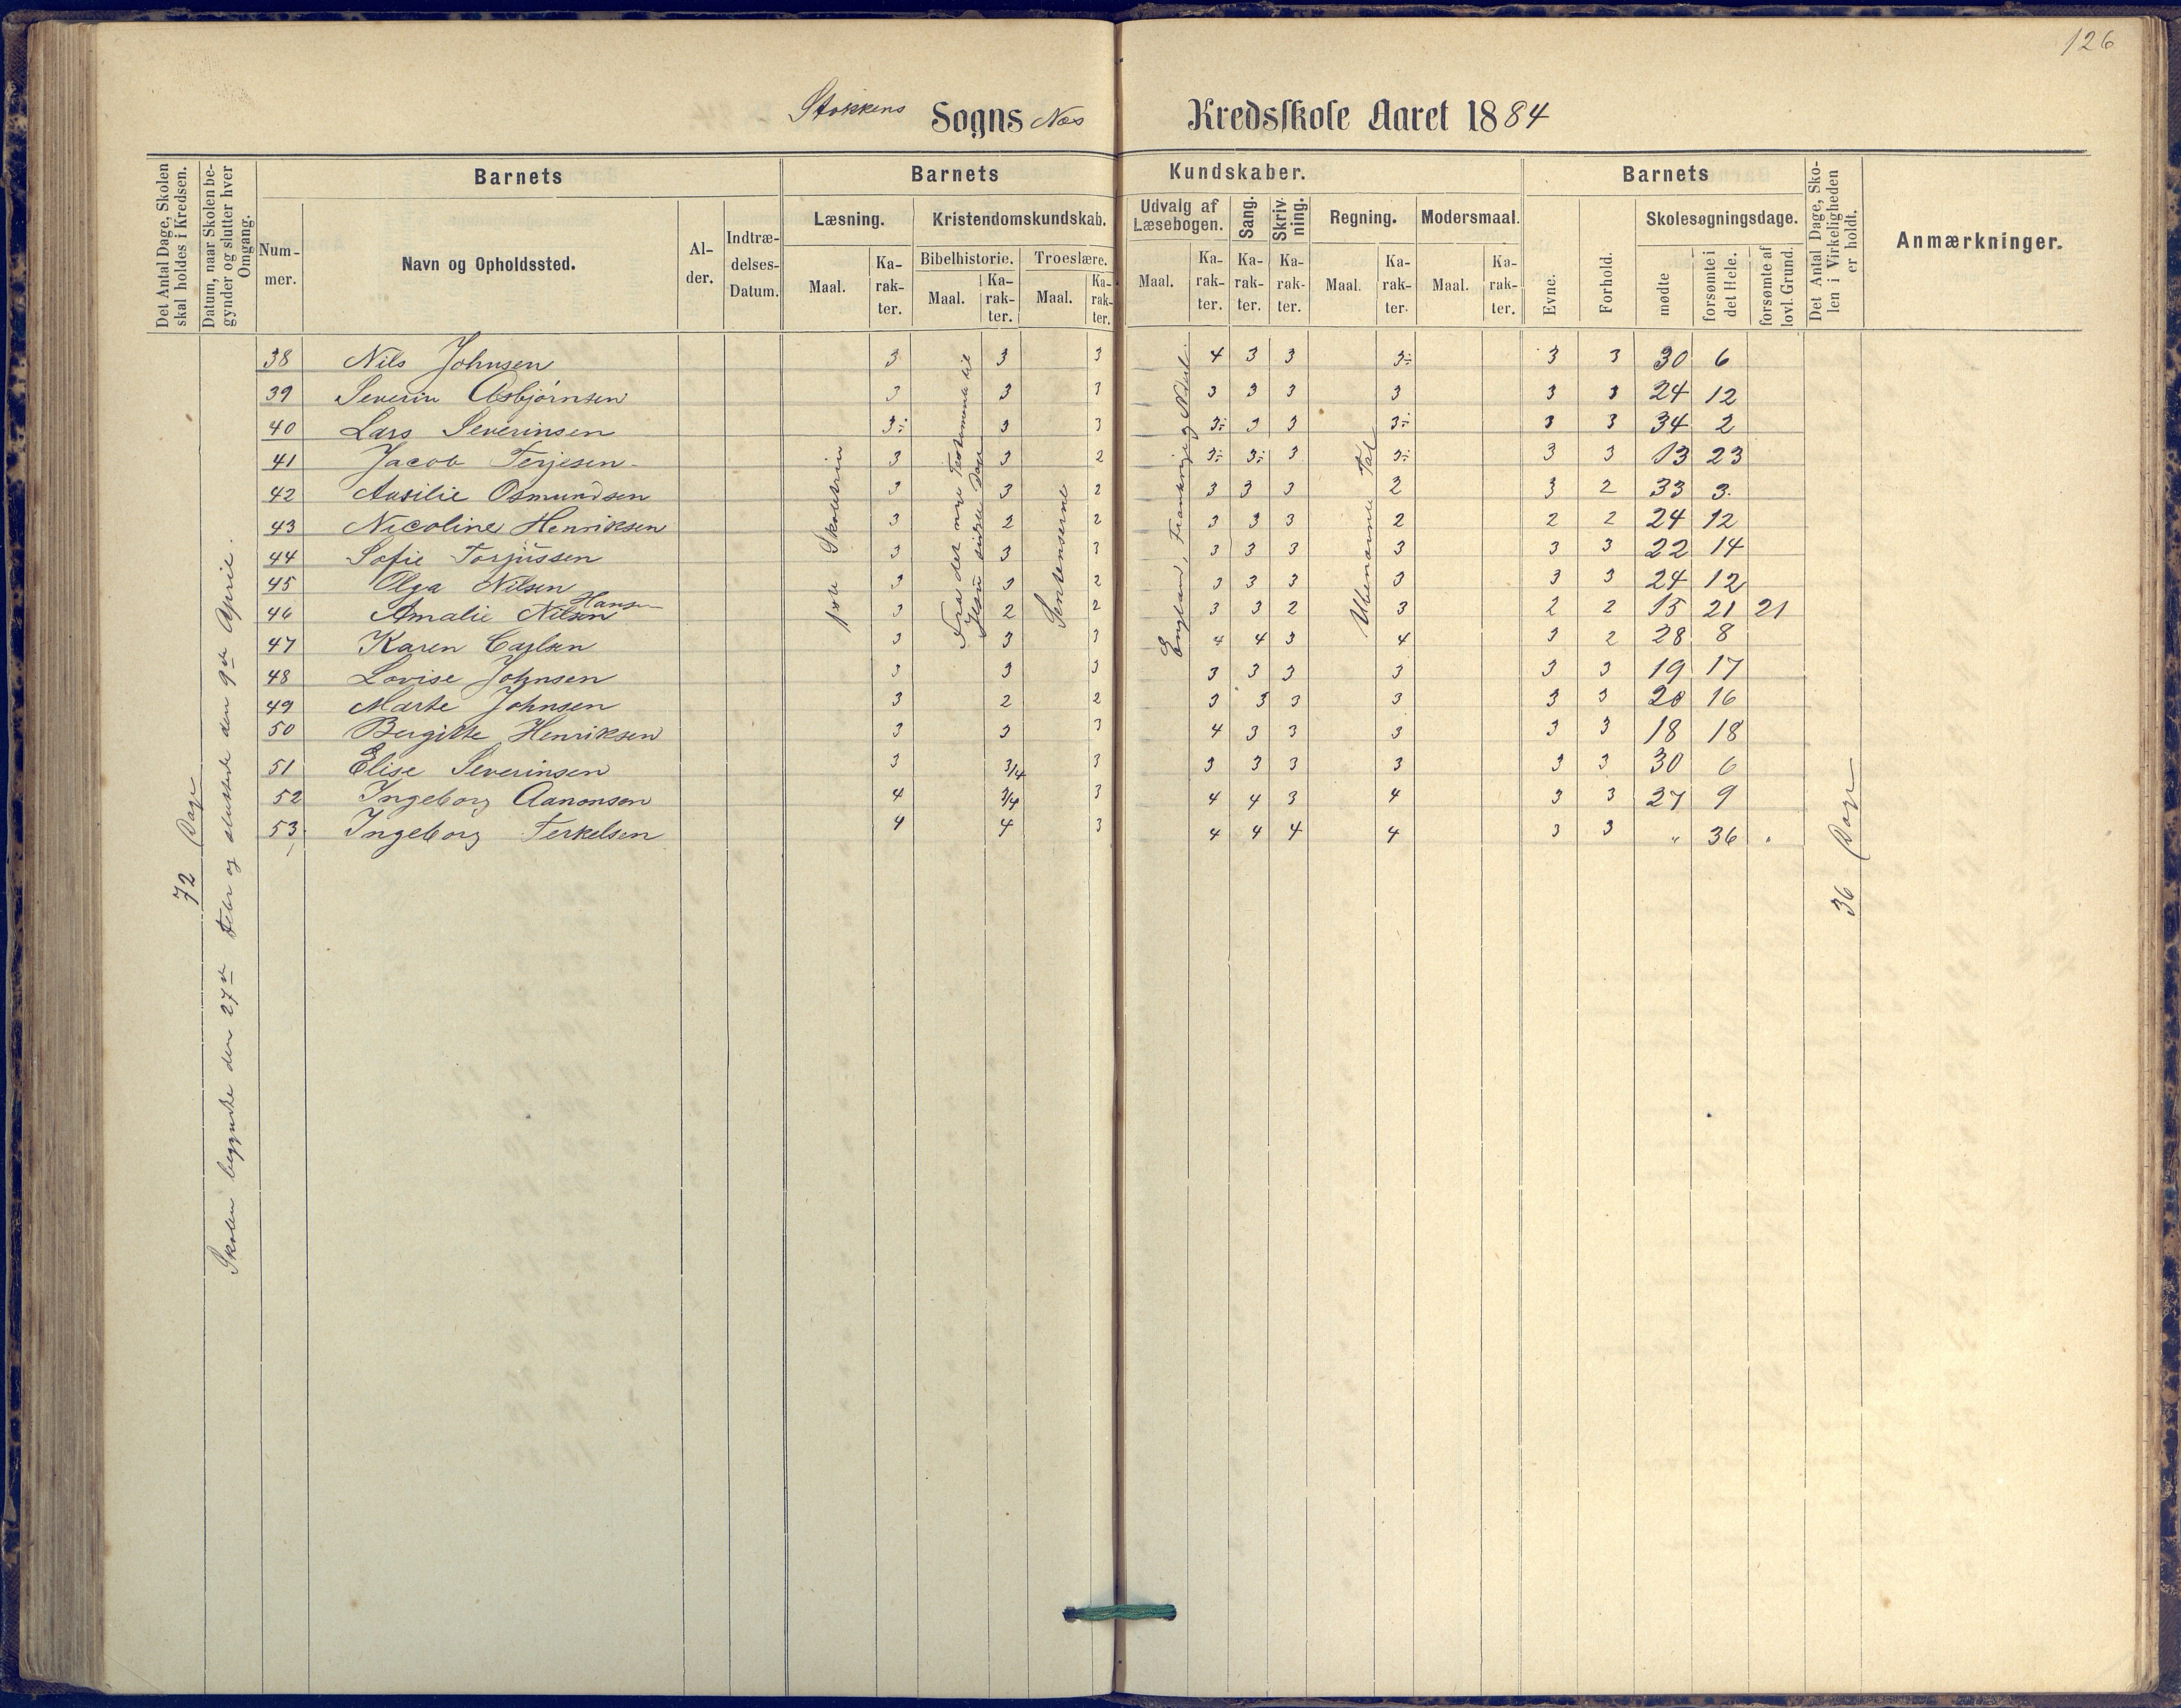 126
Stokkens Sogns Næs Kredsskole Aaret 1884
Det Antal Dage, Skolen skal holdes i Kredsen.
Datum, naar Skolen begynder og slutter hver Omgang.
Barnets
Nummer.
Navn og Opholdssted.
Alder.
Indtrædelses-Datum.
Barnets Kundskaber.
Læsning.
Maal.
Karakter.
Kristendomskundskab.
Bibelhistorie.
Maal.
Karakter.
Troeslære.
Maal.
Karakter.
Udvalg af Læsebogen.
Maal.
Karakter.
Sang.
Karakter.
Skrivning.
Karakter.
Regning.
Maal.
Karakter.
Modersmaal.
Maal.
Karakter.
Barnets
Evne.
Forhold.
Skolesøgningsdage.
mødte
forsømte i det Hele.
forsømte af lovl. Grund.
Det Antal Dage, Skolen i Virkeligheden er holdt.
Anmærkninger.
72 Dage
Skolen begyndte den 27de Febr og sluttede den 9de April.
1ste Skoletrin
Fra det nye Testamente til
Jesu sidste Dage
Sentenserne
England, Frankrige og
Ubenævnte Tal
36 Dage
38 Nils Johnsen 3 3 3 4 3 3 3÷ 3 3 30 6
39 Severin Asbjørnsen 3 3 3 3 3 3 3 3 3 24 12
40 Lars Severinsen 3÷ 3 3 3÷ 3 3 3÷ 3 3 34 2
41 Jacob Terjesen 3 3 2 3÷ 3÷ 3 3÷ 3 3 13 23
42 Aasilie Osmundsen 3 3 2 3 3 3 2 3 2 33 3
43 Nicoline Henriksen 3 2 2 3 3 3 2 2 2 24 12
44 Sofie Torjussen 3 3 3 3 3 3 3 3 3 22 14
45 Olga Nilsen 3 3 2 3 3 3 3 3 3 24 12
46 Amalie Nilsen Hansen 3 2 2 3 3 2 3 2 2 15 21 21
47 Karen Carlsen 3 3 3 4 4 3 4 3 2 28 8
48 Lovise Johnsen 3 3 3 3 3 3 3 3 3 19 17
49 Marte Johnsen 3 2 2 3 3 3 3 3 3 20 16
50 Bergitte Henriksen 3 3 3 4 3 3 3 3 3 18 18
51 Elise Severinsen 3 3/4 3 3 3 3 3 3 3 30 6
52 Ingeborg Aanonsen 4 3/4 3 4 4 3 4 3 3 27 9
53 Ingeborg Terkelsen 4 4 3 4 4 4 4 3 3 " 36 "